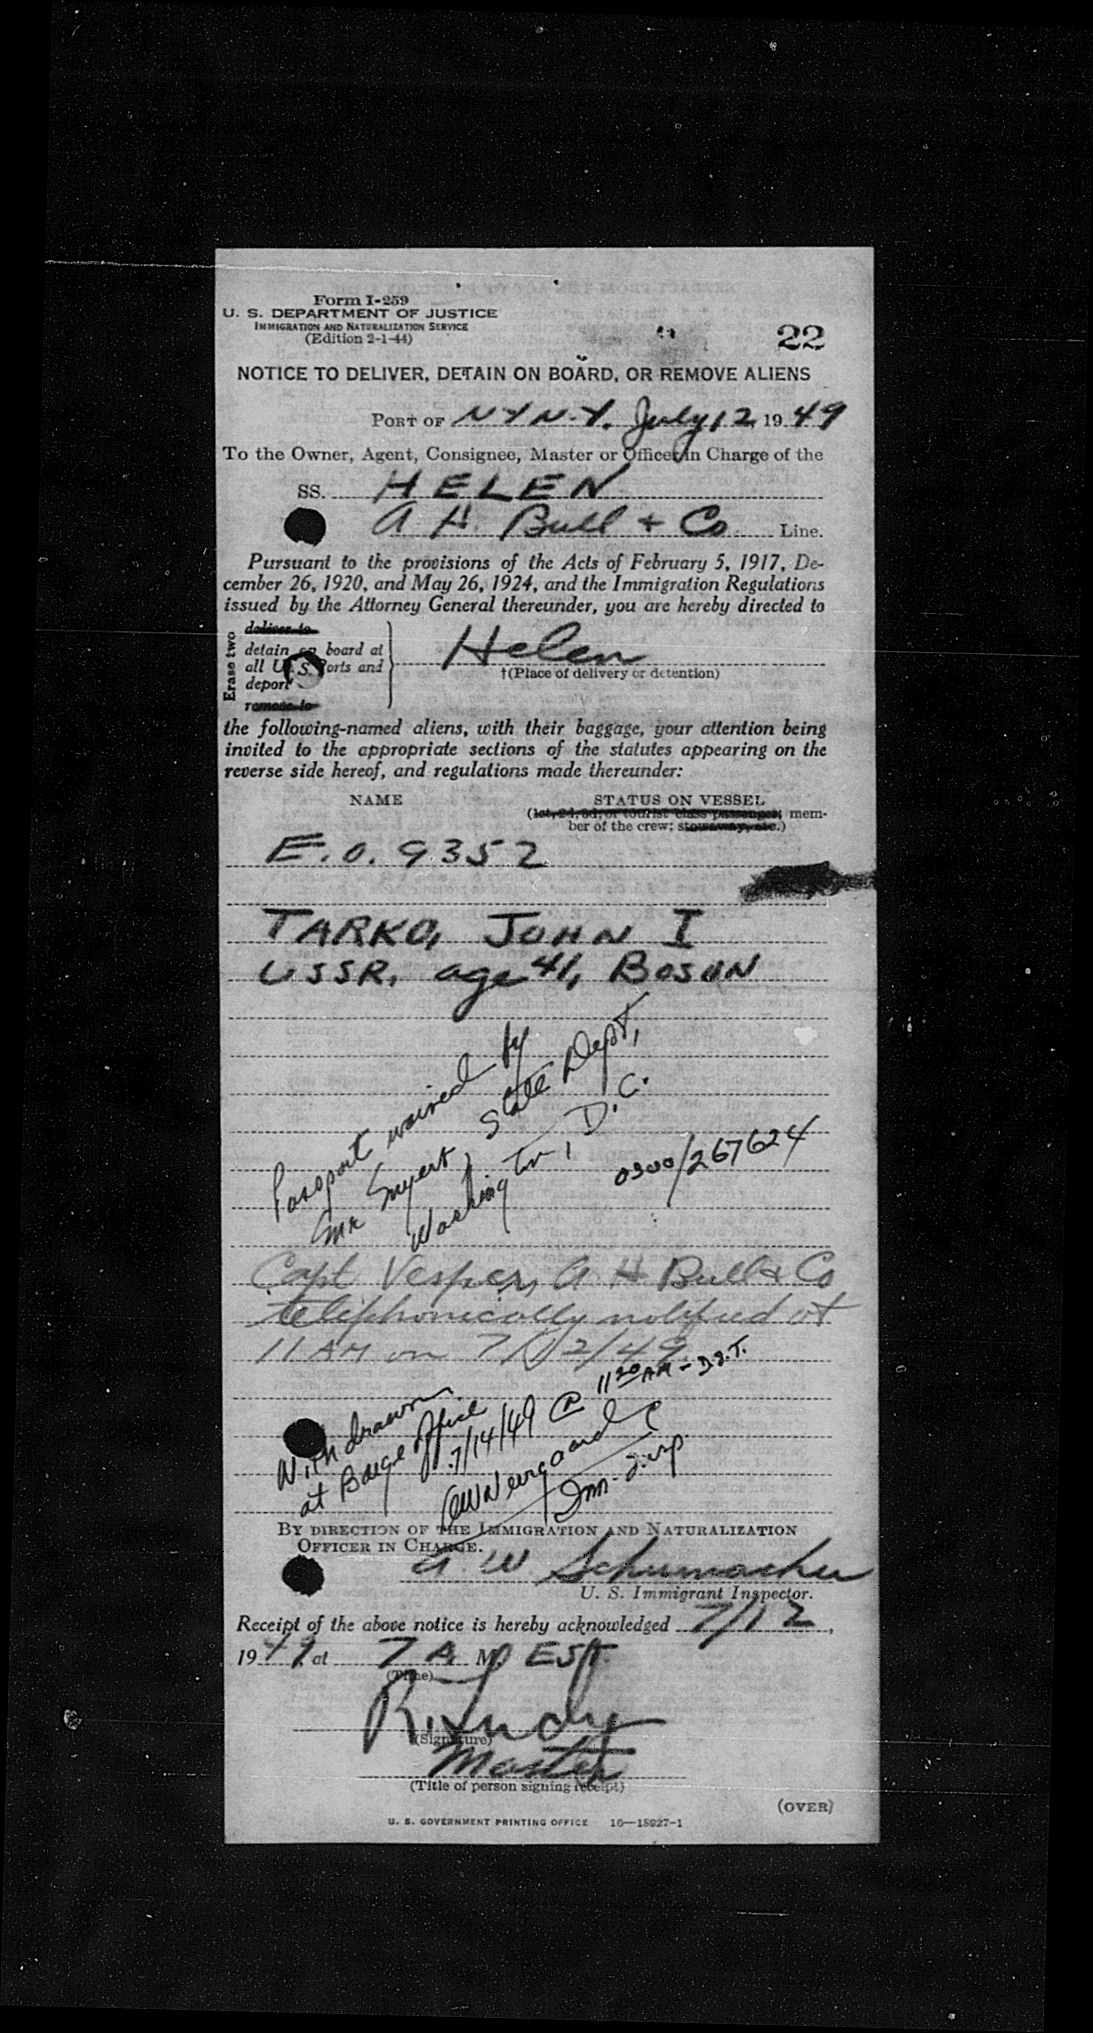 Form I-259
U. S. DEPARTMENT OF JUSTICE
IMMIGRATION AND NATURALIZATION SERVICE
(Edition 2-1-44)
22
NOTICE TO DELIVER, DETAIN ON BOARD, OR REMOVE ALIENS
PORT OF N Y N.Y. July 12 1949
To the Owner, Agent, Consignee, Master or Officer in Charge of the
SS. HELEN
A H. Bull + Co Line.
Pursuant to the provisions of the Acts of February 5, 1917, De-
cember 26, 1920, and May 26, 1924, and the Immigration Regulations
issued by the Attorney General thereunder, you are hereby directed to
Erase two
deliver to
detain on board at
all U. S. Ports and
deport
remove to
Helen
†(Place of delivery or detention)
the following-named aliens, with their baggage, your attention being
invited to the appropriate sections of the statutes appearing on the
reverse side hereof, and regulations made thereunder:
NAME STATUS ON VESSEL
(1st, 2d, 3d, or tourist class passenger; mem-
ber of the crew; stowaway, etc.)
E.O. 9352
TARKO, JOHN I
USSR, age 41, BOSUN
Passport waived by
Mr State Dept,
Washington, D.C.
0300/267624
Capt Vesper, A H Bull & Co
telephonically notified at
11 AM on 7/12/49
Withdrawn
at Barge Office
7/14/49 @ 11 20 AM - D.S.T.
Imm. Insp.
BY DIRECTION OF THE IMMIGRATION AND NATURALIZATION
OFFICER IN CHARGE.
A. W Schumacher
U. S. Immigrant Inspector.
Receipt of the above notice is hereby acknowledged 7/12,
1949 at 7 A. M. EST.
(Time)
(Signature)
Master
(Title of person signing receipt)
(OVER)
U. S. GOVERNMENT PRINTING OFFICE 16—18927-1